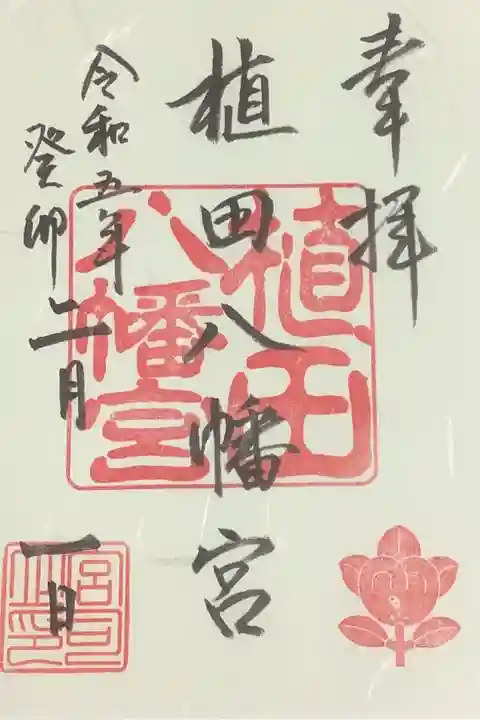 奉拝
植田八幡宮
令和五年
癸卯
二月
一日
植田
八幡宮
宮司
之印